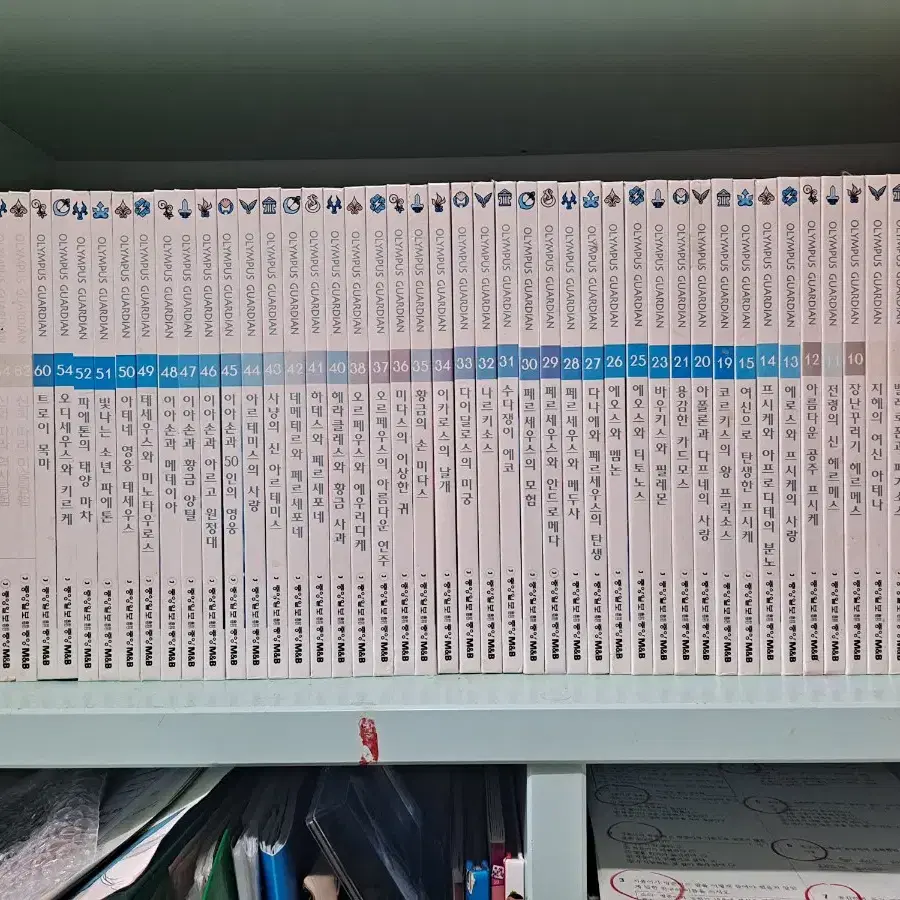 OLYMPUS GUARDIAN 60 트로이 목마 중앙M&B
OLYMPUS GUARDIAN 54 오디세우스와 키르케 중앙M&B
OLYMPUS GUARDIAN 52 파에톤의 태양 마차 중앙M&B
OLYMPUS GUARDIAN 51 빛나는 소년 파에톤 중앙M&B
OLYMPUS GUARDIAN 50 아테네 영웅 테세우스 중앙M&B
OLYMPUS GUARDIAN 49 테세우스와 미노타우로스 중앙M&B
OLYMPUS GUARDIAN 48 이아손과 메데이아 중앙M&B
OLYMPUS GUARDIAN 47 이아손과 황금 양털 중앙M&B
OLYMPUS GUARDIAN 46 이아손과 아르고 원정대 중앙M&B
OLYMPUS GUARDIAN 45 이아손과 50인의 영웅 중앙M&B
OLYMPUS GUARDIAN 44 아르테미스의 사랑 중앙M&B
OLYMPUS GUARDIAN 43 사냥의 신 아르테미스 중앙M&B
OLYMPUS GUARDIAN 42 데메테르와 페르세포네 중앙M&B
OLYMPUS GUARDIAN 41 하데스와 페르세포네 중앙M&B
OLYMPUS GUARDIAN 40 헤라클레스와 황금 사과 중앙M&B
OLYMPUS GUARDIAN 38 오르페우스와 에우리디케 중앙M&B
OLYMPUS GUARDIAN 37 오르페우스의 아름다운 연주 중앙M&B
OLYMPUS GUARDIAN 36 미다스의 이상한 귀 중앙M&B
OLYMPUS GUARDIAN 35 황금의 손 미다스 중앙M&B
OLYMPUS GUARDIAN 34 이카로스의 날개 중앙M&B
OLYMPUS GUARDIAN 33 다이달로스의 미궁 중앙M&B
OLYMPUS GUARDIAN 32 나르키소스 중앙M&B
OLYMPUS GUARDIAN 31 수다쟁이 에코 중앙M&B
OLYMPUS GUARDIAN 30 페르세우스의 모험 중앙M&B
OLYMPUS GUARDIAN 29 페르세우스와 안드로메다 중앙M&B
OLYMPUS GUARDIAN 28 페르세우스와 메두사 중앙M&B
OLYMPUS GUARDIAN 27 다나에와 페르세우스의 탄생 중앙M&B
OLYMPUS GUARDIAN 26 에오스와 멤논 중앙M&B
OLYMPUS GUARDIAN 25 에오스와 티토노스 중앙M&B
OLYMPUS GUARDIAN 23 바우키스와 필레몬 중앙M&B
OLYMPUS GUARDIAN 21 용감한 카드모스 중앙M&B
OLYMPUS GUARDIAN 20 아폴론과 다프네의 사랑 중앙M&B
OLYMPUS GUARDIAN 19 코르키스의 왕 프릭소스 중앙M&B
OLYMPUS GUARDIAN 15 여신으로 탄생한 프시케 중앙M&B
OLYMPUS GUARDIAN 14 프시케와 아프로디테의 분노 중앙M&B
OLYMPUS GUARDIAN 13 에로스와 프시케의 사랑 중앙M&B
OLYMPUS GUARDIAN 12 아름다운 공주 프시케 중앙M&B
OLYMPUS GUARDIAN 11 전령의 신 헤르메스 중앙M&B
OLYMPUS GUARDIAN 10 장난꾸러기 헤르메스 중앙M&B
OLYMPUS GUARDIAN 지혜의 여신 아테나 중앙M&B
OLYMPUS GUARDIAN 벨레로폰과 페가소스